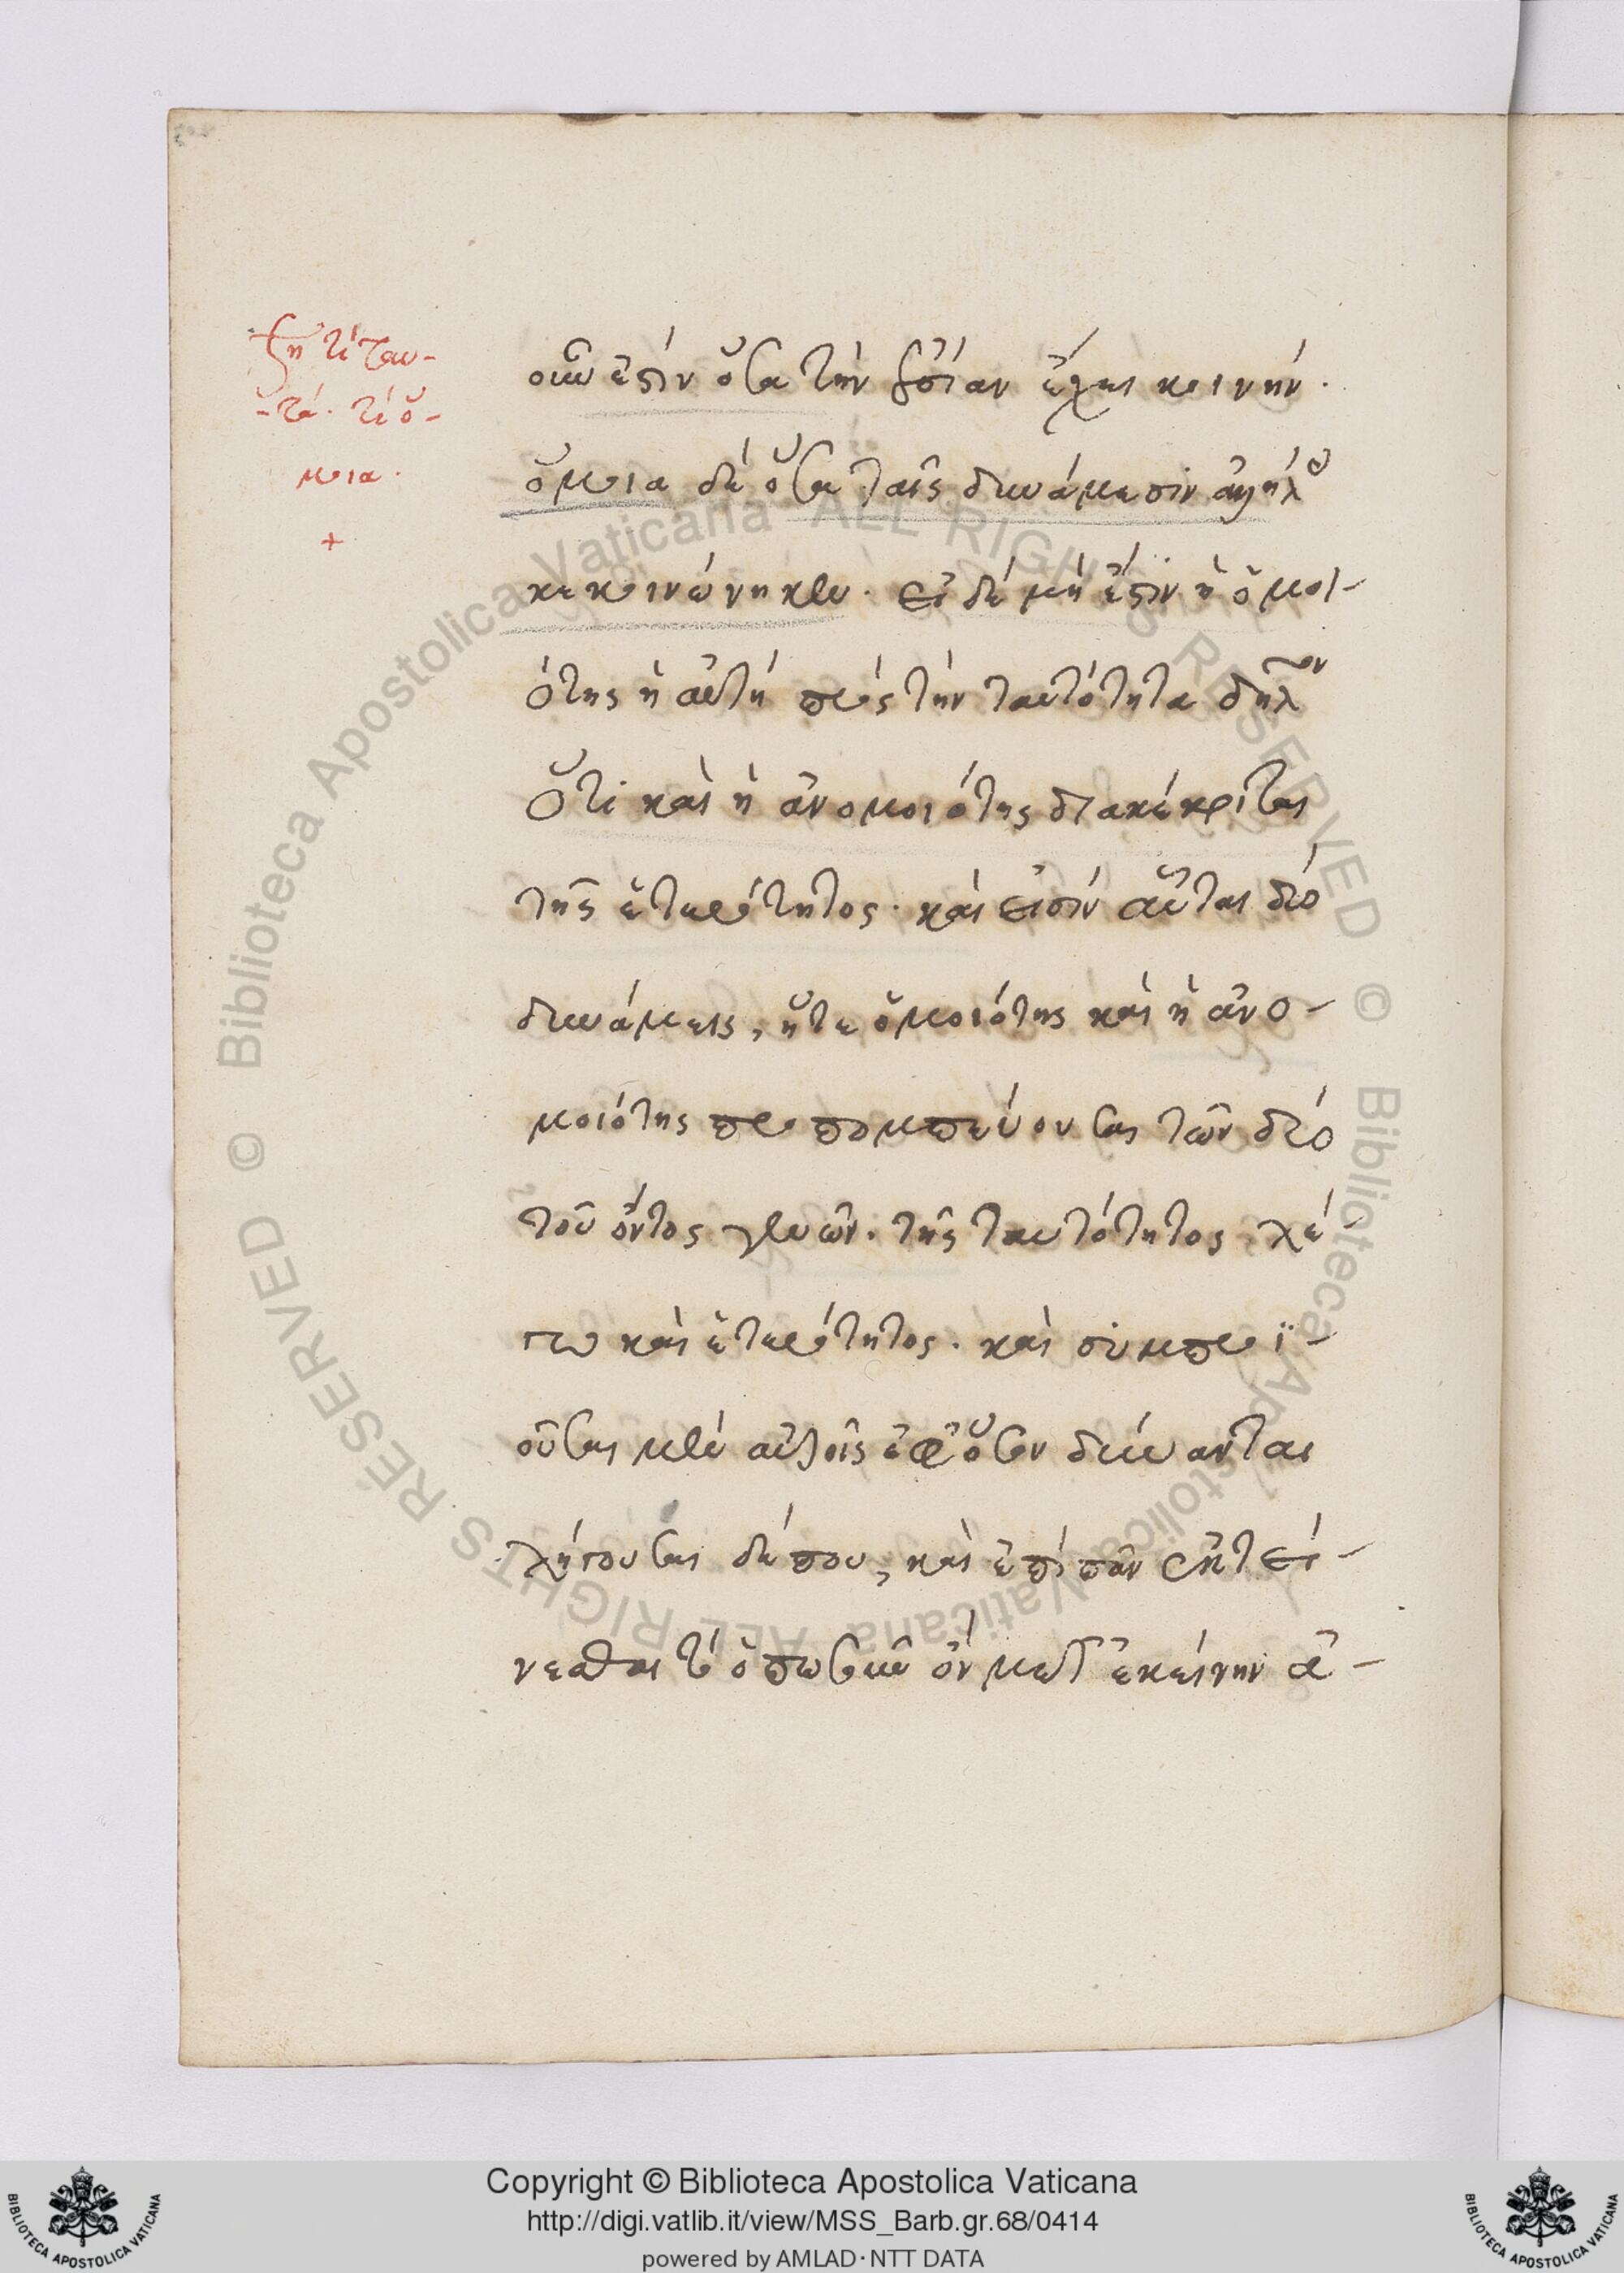 ζή τί ταυ-
-τά. τί ὅ-
μοια.
+
οὖν ἐστὶν ὅσα τὴν οὐσίαν ἔχει κοινήν.
ὅμοια δὲ ὅσα ταῖς δυνάμεσιν ἀλλήλοις
κεκοινώνηκεν. εἰ δὲ μή ἐστιν ἡ ὁμοι-
ότης ἡ αὐτὴ πρὸς τὴν ταυτότητα δῆλον
ὅτι καὶ ἡ ἀνομοιότης διακέκριται
τῆς ἑτερότητος. καὶ εἰσὶν αὗται δύο
δυνάμεις, ἥτε ὁμοιότης καὶ ἡ ἀνο-
μοιότης προπομπεύουσαι τῶν δύο
τοῦ ὄντος γενῶν. τῆς ταυτότητος λέ-
γω καὶ ἑτερότητος. καὶ συμπροϊ-
οῦσαι μὲν αὐτοῖς ἐφ' ὅσον δύνανται
λήγουσαι δέ που, καὶ ἐπὶ πᾶν ἐκτεί-
νεσθαι τὸ ὁπωσοῦν ὂν μετ' ἐκείνην ἀ-
Copyright © Biblioteca Apostolica Vaticana
http://digi.vatlib.it/view/MSS_Barb.gr.68/0414
powered by AMLAD·NTT DATA
BIBLIOTECA APOSTOLICA VATICANA
BIBLIOTECA APOSTOLICA VATICANA
© Biblioteca Apostolica Vaticana ALL RIGHTS RESERVED
© Biblioteca Apostolica Vaticana ALL RIGHTS RESERVED